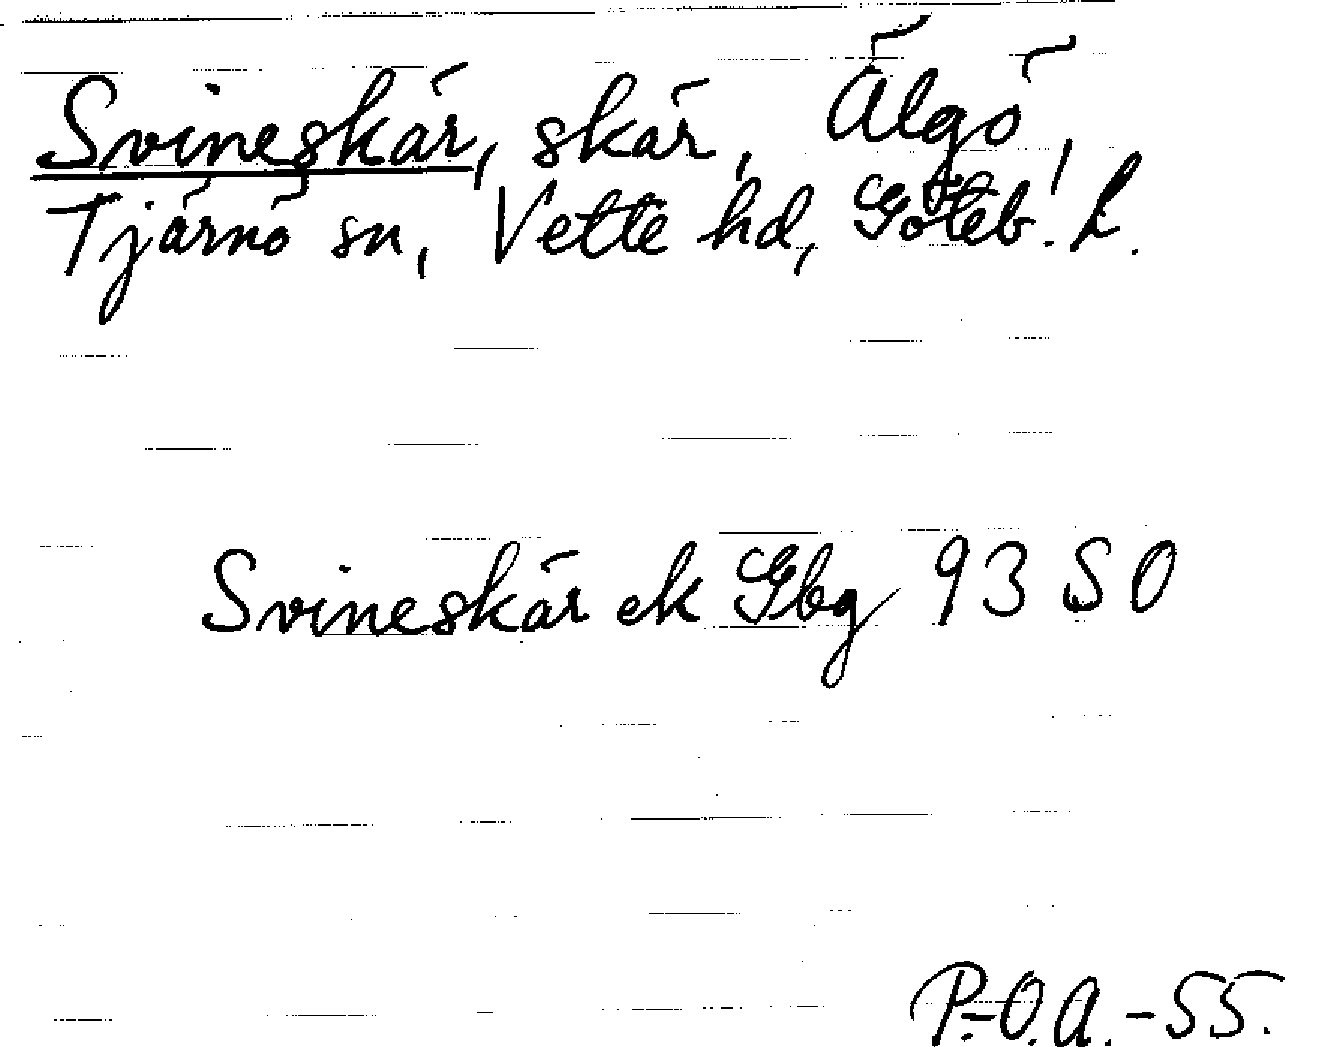 Svineskär, skär, Älgö,
Tjärnö sn, Vette hd, Göteb. l.
Svineskär ek Gbg 93 SO
P.-O.A.-55.